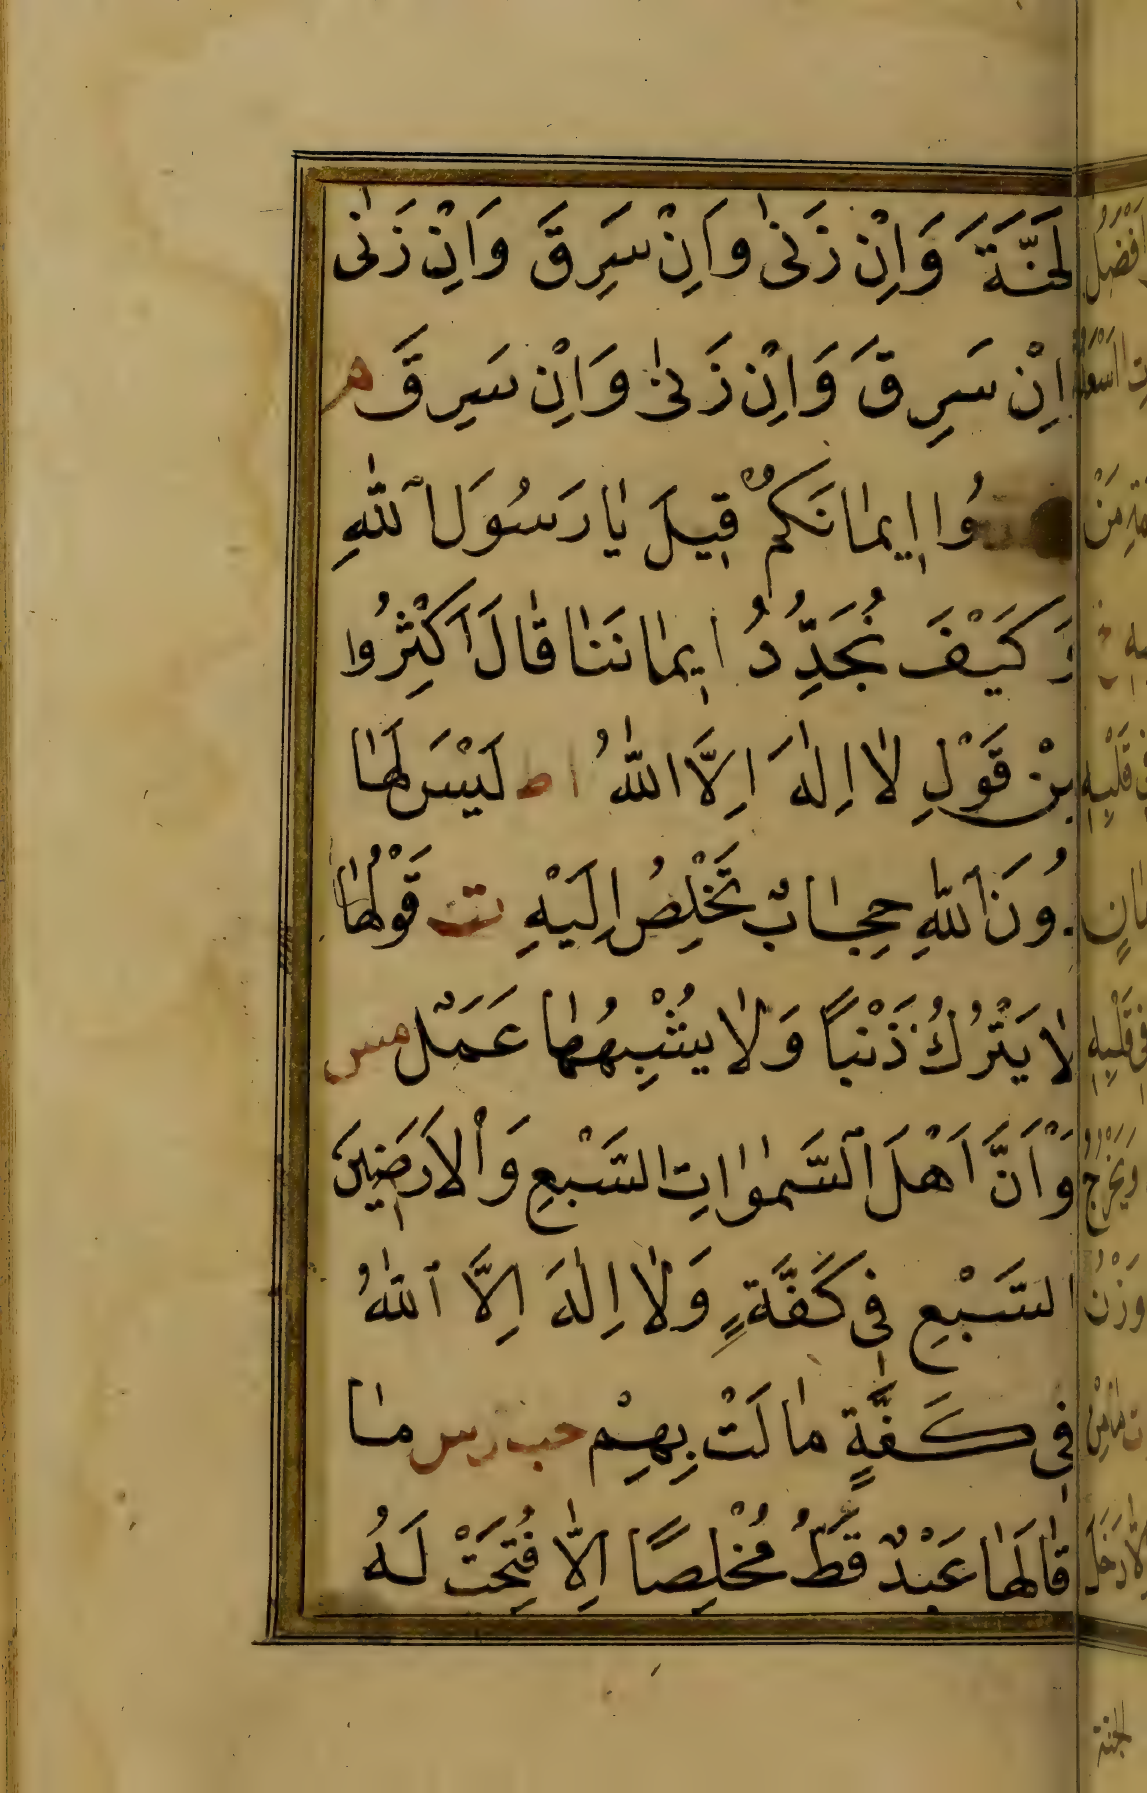 لجَنَّةَ وَاِنْ زَنىٰ وَاِنْ سَرِقَ وَاِنْ زَنىٰ
اِنْ سَرِقَ وَاِنْ زَنىٰ وَاِنْ سَرِقَ م
وُا اِيمٰانَكُمْ قِيلَ يٰا رَسُولَ ٱللّٰهِ
وَكَيْفَ نُجَدِّدُ اِيمٰانَنٰا قٰالَ اَكْثِرُوا
مِنْ قَوْلِ لٰا اِلٰهَ اِلَّا اللّٰهُ ا ط لَيْسَ لَهٰا
دُونَ ٱللّٰهِ حِجٰابٌ تَخْلِصُ اِلَيْهِ ت قَوْلُهٰا
لٰا يَتْرُكُ ذَنْباً وَلٰا يُشْبِهُهٰا عَمَلٌ مس
وَاَنَّ اَهْلَ ٱلسَّمٰوٰاتِ السَّبْعِ وَالْاَرَضِينَ
السَّبْعِ فِى كَفَّةٍ وَلٰا اِلٰهَ اِلَّا ٱللّٰهُ
فِى كَفَّةٍ مٰا لَتْ بِهِمْ حب ر س مٰا
قٰالَهٰا عَبْدٌ قَطُّ مُخْلِصًا اِلّٰا فُتِحَتْ لَهُ
الجنة